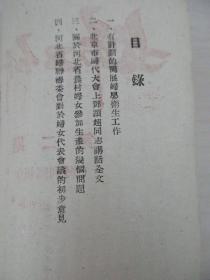 目錄
一、有計劃的開展婦嬰衛生工作
二、北京市婦代大會上鄧穎超同志講話全文
三、關於河北省農村婦女參加生產的幾個問題
四、河北省婦聯籌委會對於婦女代表會議的初步意見